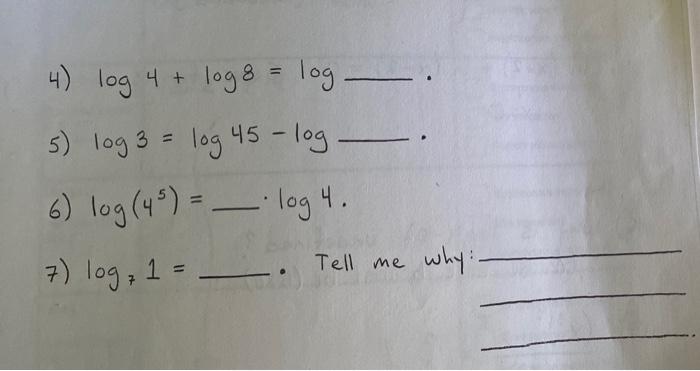 4) log 4 + log 8 = log ____ .
5) log 3 = log 45 - log ____ .
6) log (4⁵) = ___ · log 4 .
7) log₇ 1 = ____ . Tell me why: ____________
____________
____________.